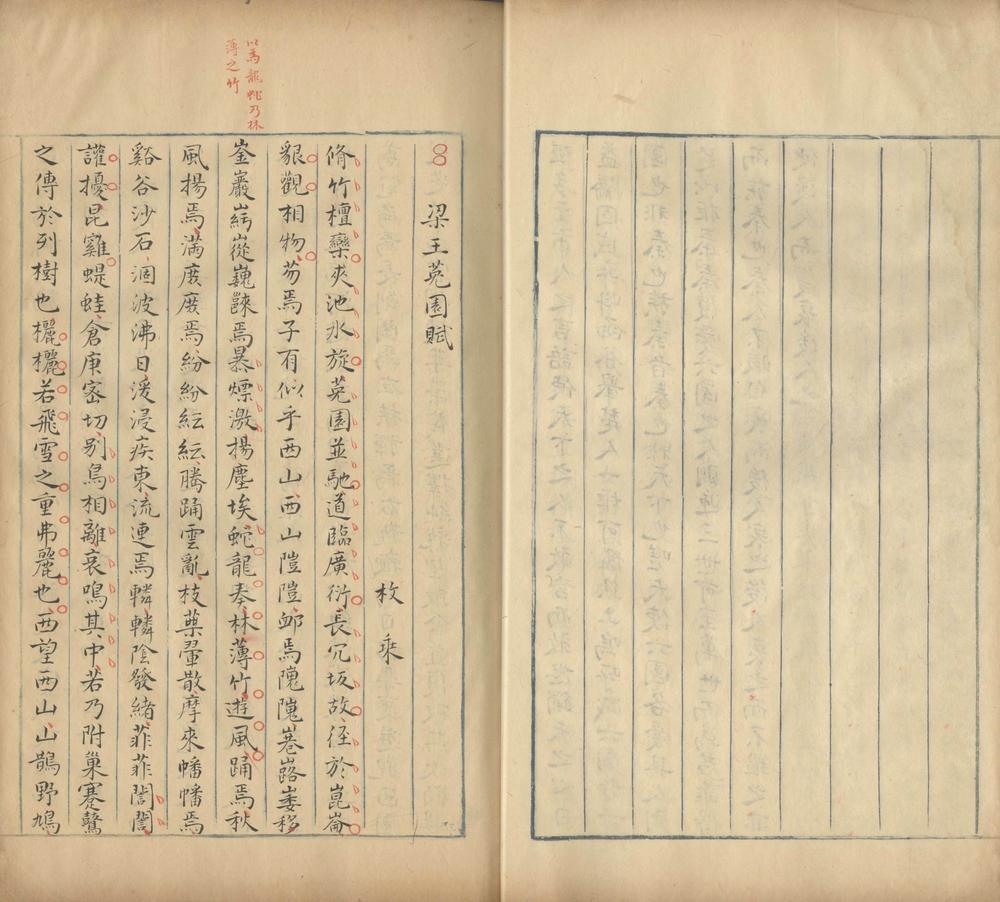 以為龍蛇乃林
薄之竹
梁王菟園賦
枚乘
脩竹檀欒夾池水旋菟園並馳道臨廣衍長冗坂故徑於崑崙
貇觀相物芴焉子有似乎西山西山隑隑䘏焉隗隗巷路崣䅬
崟巖㟏嵸巍𨻎焉暴熛激揚塵埃蛇龍奏林薄竹遊風踊焉秋
風揚焉滿庶庶焉紛紛紜紜騰踊雲亂枝葉翬散摩來幡幡焉
谿谷沙石涸波沸日湲浸疾東流連焉轔轔陰發緒菲菲誾誾
讙擾昆雞蝭蛙倉庚密切別鳥相離哀鳴其中若乃附巢蹇鷔
之傳於列樹也欐欐若飛雪之重弗麗也西望西山山鵲野鳩